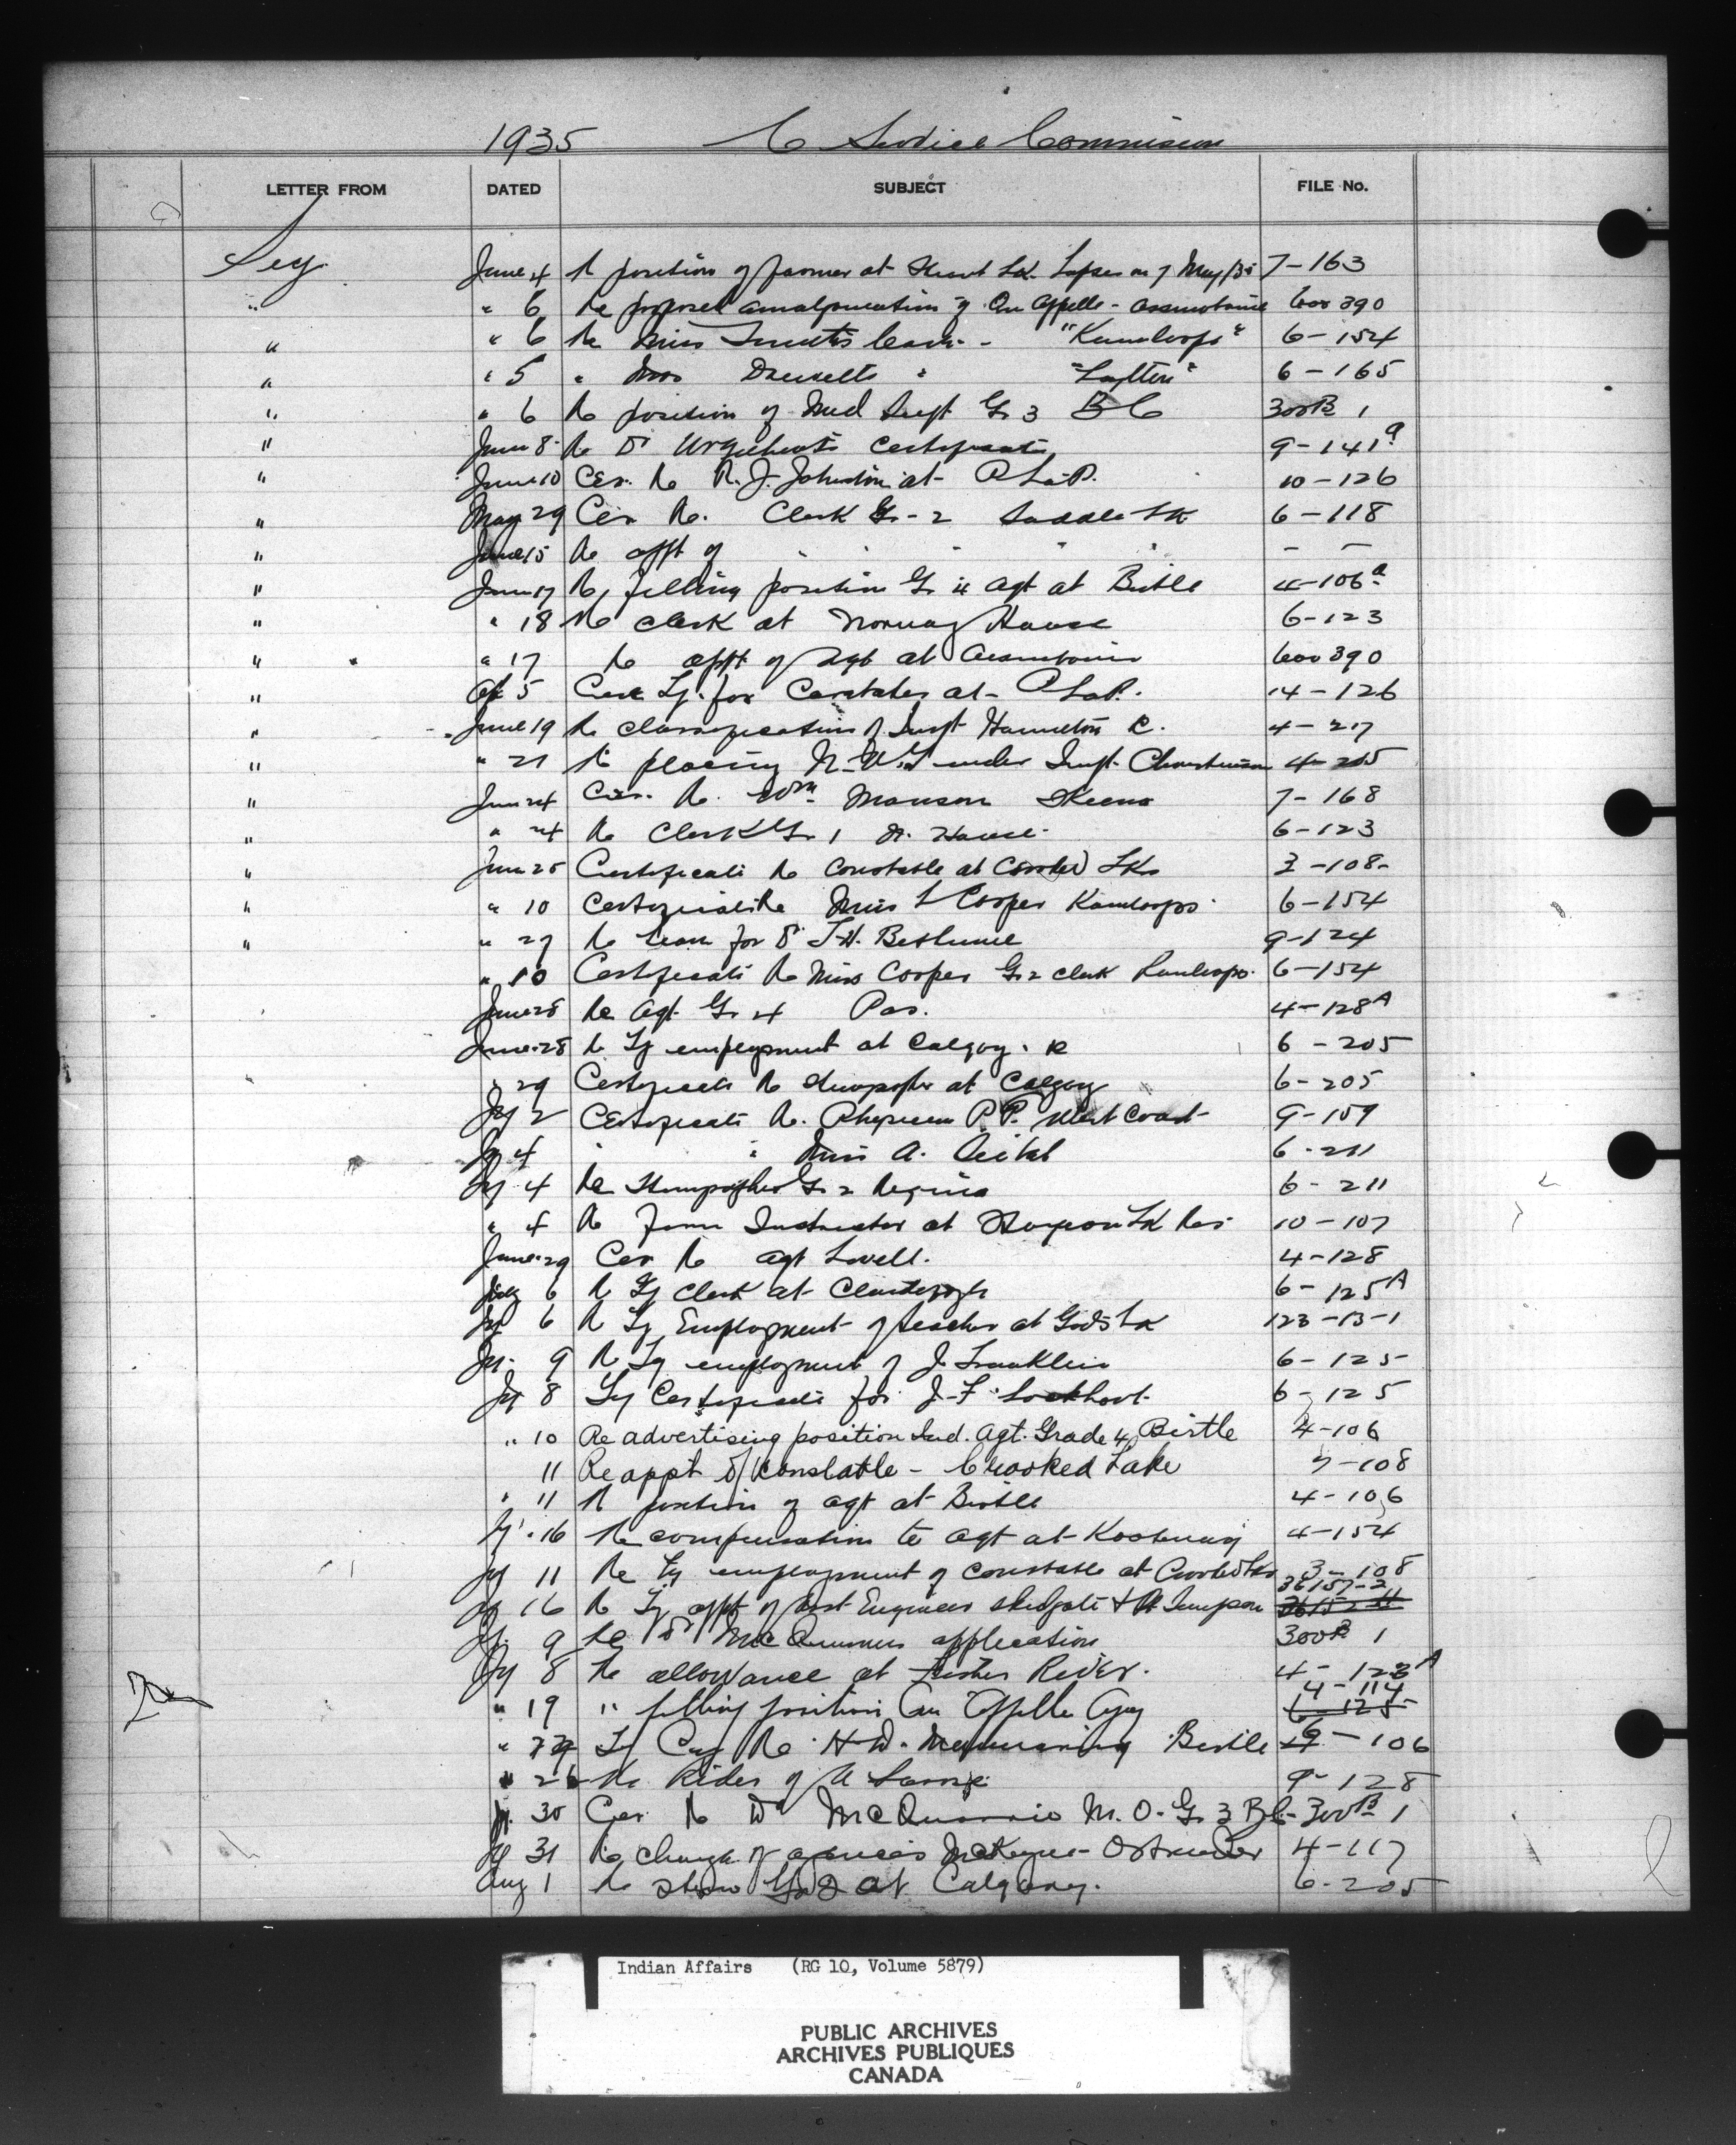 1935 C Service Commission
LETTER FROM DATED SUBJECT FILE No.
Secy June 4 Re position of farmer at Stuart Lk. Lapses on 7 May/35 7-163
" " 6 Re proposed amalgamation of Qu Appelle - Assiniboine 600390
" " 6 Re Miss Smith's leave - "Kamloops" 6-154
" " 5 " Miss " "Lytton" 6-165
" " 6 Re position of Med Supt Gr 3 BC 300B 1
" June 8 Re Dr Urquhart's Certificate 9-141a
" June 10 Cer. Re R. J. Johnston at P LaP. 10-126
" May 29 Cer Re. Clerk Gr-2 Saddle Lk 6-118
" June 15 Re appt of " " " " - -
" June 17 Re filling position Gr 4 agt at Birtle 4-106a
" " 18 Re clerk at Norway House 6-123
" " 17 Re appt of Agt at Assiniboine 600390
" Ap 5 Cer Ty. for Constable at P LaP. 14-126
" June 19 Re classification of Insp Hamilton R. 4-217
" " 21 Re placing N.W.T under Insp. Christianson 4-205
" June 24 Cer. Re. Wm Manson Skeena 7-168
" " 24 Re Clerk Gr 1 N. House 6-123
" June 25 Certificate Re Constable at Crooked Lks 3-108-
" " 10 Certificate Re Miss L Cooper Kamloops 6-154
" " 27 Re leave for Dr T.H. Bethune 9-124
" 10 Certificate Re Miss Cooper Gr 2 clerk Kamloops. 6-154
June 28 Re Agt. Gr 4 Pas. 4-128A
June 28 Re Ty employment at Calgary. R 6-205
" 29 Certificate Re Stenographer at Calgary 6-205
Jy 2 Certificate Re. Physician P.P. West Coast 9-159
Jy 4 " " Miss A. 6-211
Jy 4 Re Stenographer Gr 2 Regina 6-211
" 4 Re Farm Instructor at Sturgeon Lk Res 10-107
June 29 Cer Re Agt Lovell. 4-128
July 6 Re Ty Clerk at Clandeboye 6-125A
Jy 6 Re Ty Employment of teacher at Gods Lk 123-13-1
Jy. 9 Re Ty employment of J. Franklin 6-125
Jy 8 Ty Certificate for J-F Lockhart. 6-125
" 10 Re advertising position Ind. Agt. Grade 4, Birtle 4-106
11 Re appt of Constable - Crooked Lake 3-108
" 11 Re position of agt at Birtle 4-106
Jy. 16 Re compensation to agt at Kootenay 4-154
Jy 11 Re Ty employment of constable at Crooked Lks 3-108
36157-2
Jy 16 Re Ty appt of Asst Engineer Skidgate & Pt Simpson
Jy. 9 Re Dr McQuarries application 300B 1
Jy 8 Re allowance at Fisher River. 4-123A
4-114
" 19 " filling position Qu Appelle Agcy 6-125
" Ty Re H.W. Birtle 6-106
" 26 Re of 9-128
Jy. 30 Cer Re Dr McQuarrie M.O. Gr 3 BC- 300B 1
Jy 31 Re change of agencies - Ostrander 4-117
Aug 1 Re Steno Gr 2 at Calgary. 6-205
Indian Affairs (RG 10, Volume 5879)
PUBLIC ARCHIVES
ARCHIVES PUBLIQUES
CANADA